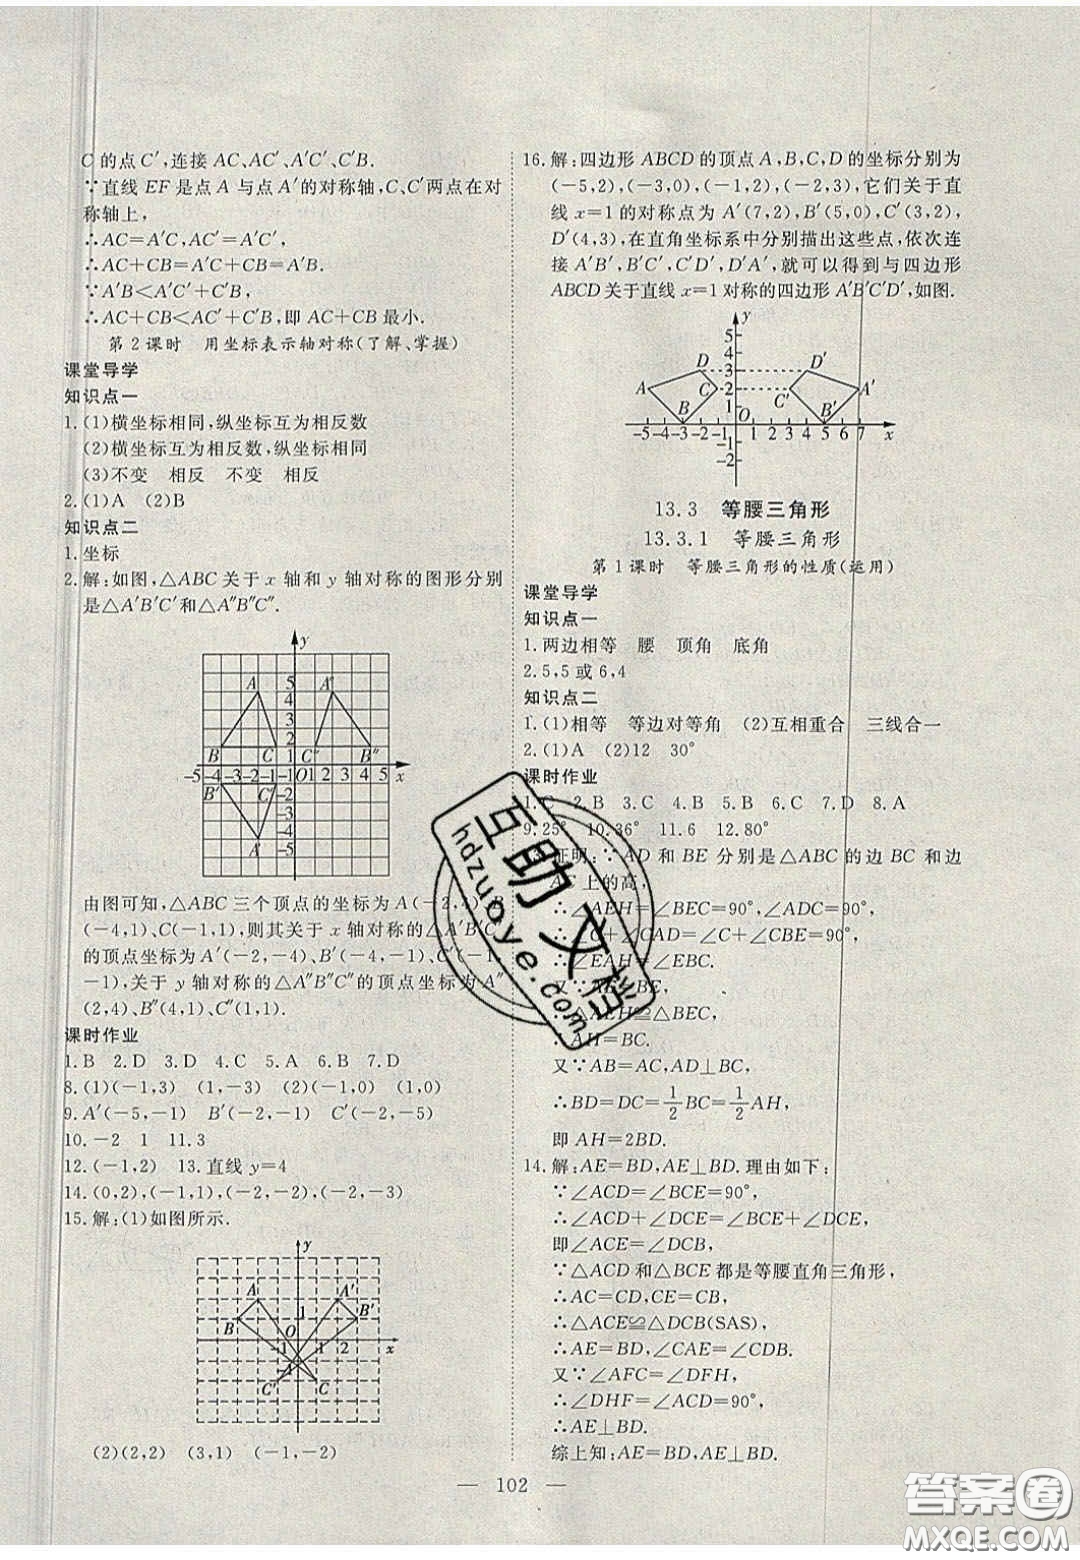 C 的点 C′,连接 AC、AC′、A′C′、C′B.
∵直线 EF 是点 A 与点 A′的对称轴,C、C′两点在对
称轴上,
∴AC=A′C,AC′=A′C′,
∴AC+CB=A′C+CB=A′B.
∵A′B<A′C′+C′B,
∴AC+CB<AC′+C′B,即 AC+CB 最小.
第 2 课时 用坐标表示轴对称(了解、掌握)
课堂导学
知识点一
1.(1)横坐标相同,纵坐标互为相反数
(2)横坐标互为相反数,纵坐标相同
(3)不变 相反 不变 相反
2.(1)A (2)B
知识点二
1.坐标
2.解:如图,△ABC 关于 x 轴和 y 轴对称的图形分别
是△A′B′C′和△A″B″C″.
y
A 5 A″
4
3
2
B C 1 C″ B″
-5 -4 -3 -2 -1 O 1 2 3 4 5 x
-1
B′ C′ -2
-3
-4
A′ -5
由图可知,△ABC 三个顶点的坐标为 A(-2,4)、B
(-4,1)、C(-1,1),则其关于 x 轴对称的△A′B′C′
的顶点坐标为 A′(-2,-4)、B′(-4,-1)、C′(-1,
-1),关于 y 轴对称的△A″B″C″的顶点坐标为 A″
(2,4)、B″(4,1)、C″(1,1).
课时作业
1.B 2.D 3.D 4.C 5.A 6.B 7.D
8.(1)(-1,3) (1,-3) (2)(-1,0) (1,0)
9.A′(-5,-1) B′(-2,-1) C′(-2,-5)
10.-2 1 11.3
12.(-1,2) 13.直线 y=4
14.(0,2),(-1,-1),(-2,-2),(-2,-3)
15.解:(1)如图所示.
y
A A′
B 1 B′
O
-1 1 2 x
-1
C′ C
(2)(2,2) (3,1) (-1,-2)
16.解:四边形 ABCD 的顶点 A,B,C,D 的坐标分别为
(-5,2),(-3,0),(-1,2),(-2,3),它们关于直
线 x=1 的对称点为 A′(7,2),B′(5,0),C′(3,2),
D′(4,3),在直角坐标系中分别描出这些点,依次连
接 A′B′,B′C′,C′D′,D′A′,就可以得到与四边形
ABCD 关于直线 x=1 对称的四边形 A′B′C′D′,如图.
y
5
4
D 3 D′
A C 2 C′ A′
1
B O B′
-5 -4 -3 -2 -1 1 2 3 4 5 6 7 x
-1
-2
13.3 等腰三角形
13.3.1 等腰三角形
第 1 课时 等腰三角形的性质(运用)
课堂导学
知识点一
1.两边相等 腰 顶角 底角
2.5,5 或 6,4
知识点二
1.(1)相等 等边对等角 (2)互相重合 三线合一
2.(1)A (2)12 30°
课时作业
1.C 2.B 3.C 4.B 5.B 6.C 7.D 8.A
9.25° 10.36° 11.6 12.80°
13.证明:∵AD 和 BE 分别是△ABC 的边 BC 和边
上的高,
∴∠AEH=∠BEC=90°,∠ADC=90°,
∴∠C+∠CAD=∠C+∠CBE=90°,
∴∠EAH=∠EBC.
∵AE=BE,
∴△AEH≌△BEC,
∴AH=BC.
又∵AB=AC,AD⊥BC,
∴BD=DC=1/2BC=1/2AH,
即 AH=2BD.
14.解:AE=BD,AE⊥BD.理由如下:
∵∠ACD=∠BCE=90°,
∴∠ACD+∠DCE=∠BCE+∠DCE,
即∠ACE=∠DCB,
∵△ACD 和△BCE 都是等腰直角三角形,
∴AC=CD,CE=CB,
∴△ACE≌△DCB(SAS),
∴AE=BD,∠CAE=∠CDB.
又∵∠AFC=∠DFH,
∴∠DHF=∠ACD=90°,
∴AE⊥BD.
综上知:AE=BD,AE⊥BD.
— 102 —
互助文档
hdzuoye.com
答案圈
MXQE.COM